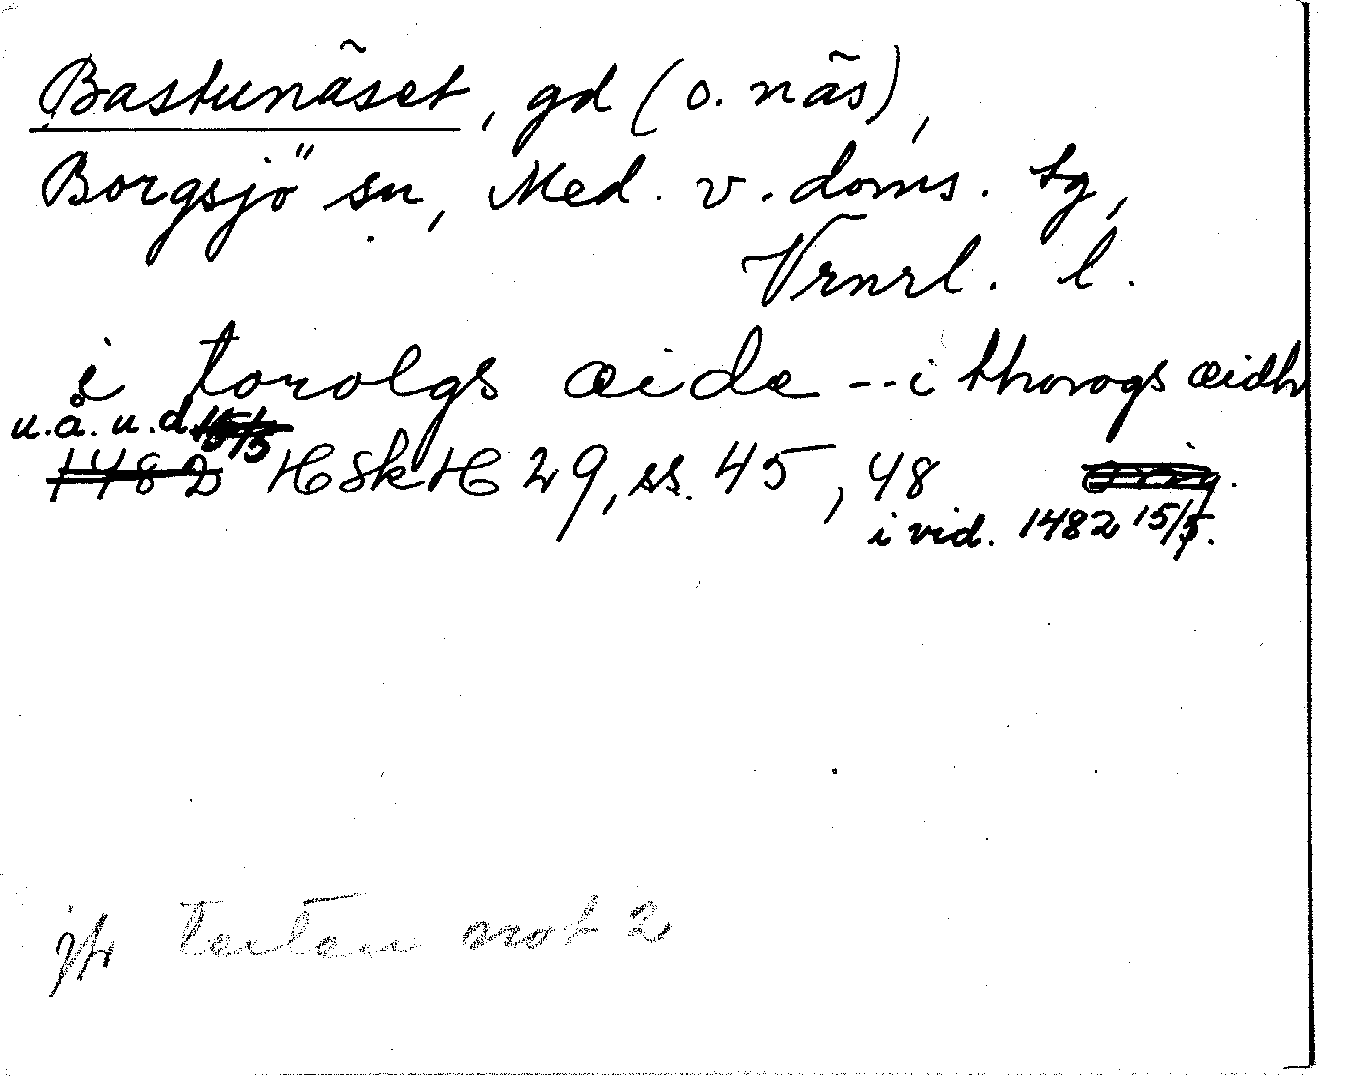 Bastunäset, gd (o. näs),
Borgsjö sn, Med. v. doms. tg,
Vrnrl. l.
i torolgs æide -- i thorogs æidh
u.å. u.d. 15/5
1482 HSkH 29, ss. 45, 48 orig.
i vid. 1482 15/5.
jfr texten arot 2